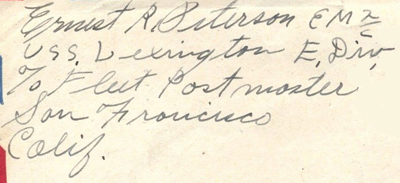 Ernest R. Peterson EM2
USS. Lexington E. Div,
% Fleet Postmaster
San Francisco
Calif.